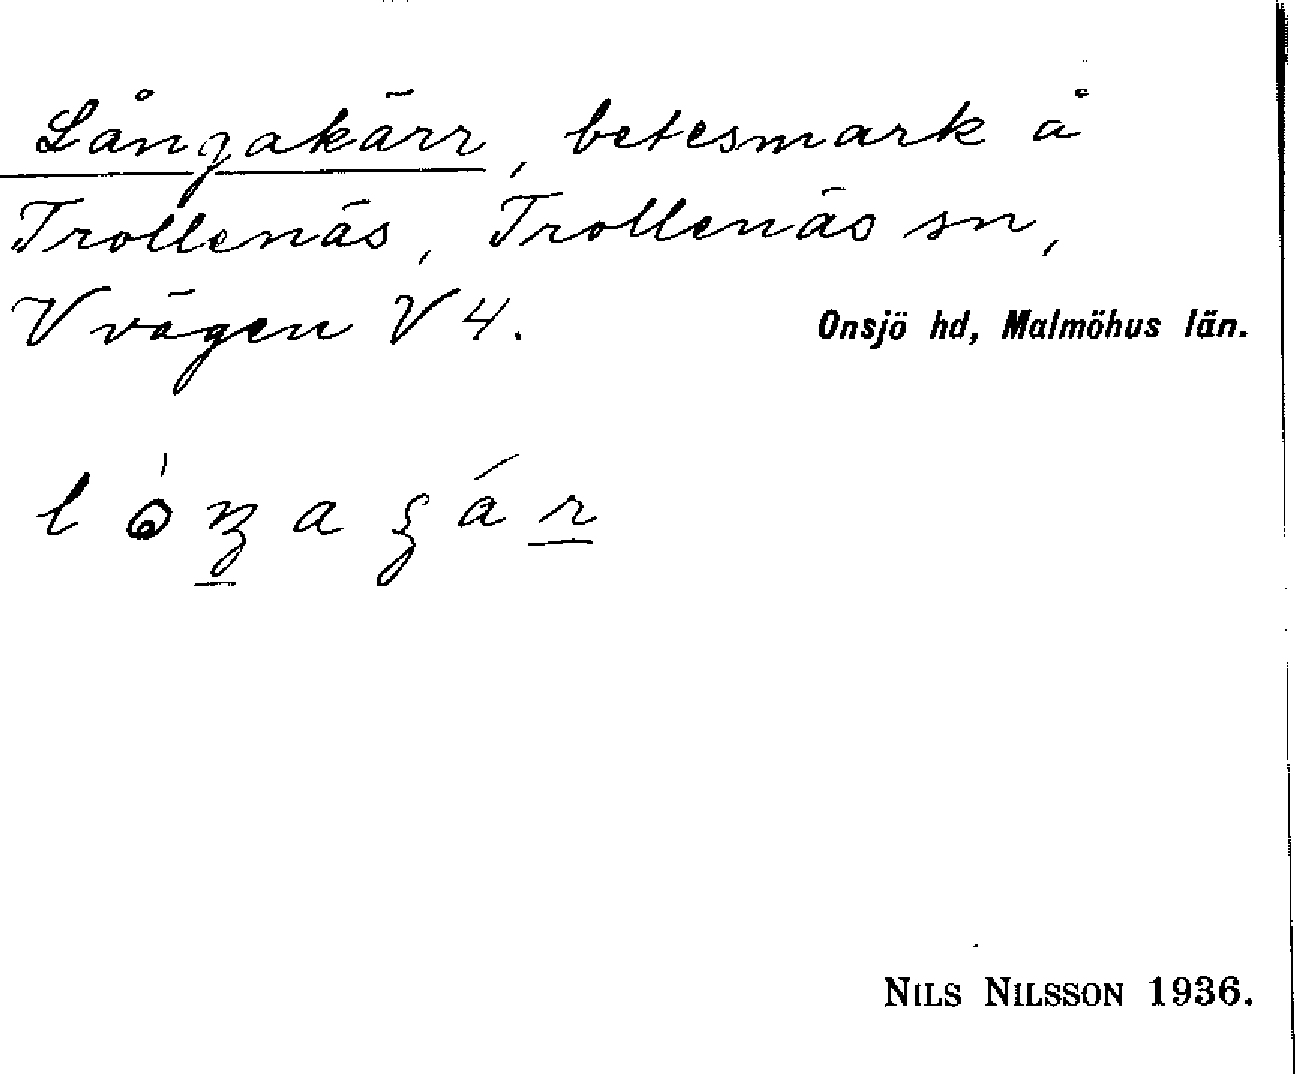 Långakärr, betesmark å
Trollenäs, Trollenäs sn,
V vägen V 4.
Onsjö hd, Malmöhus län.
NILS NILSSON 1936.